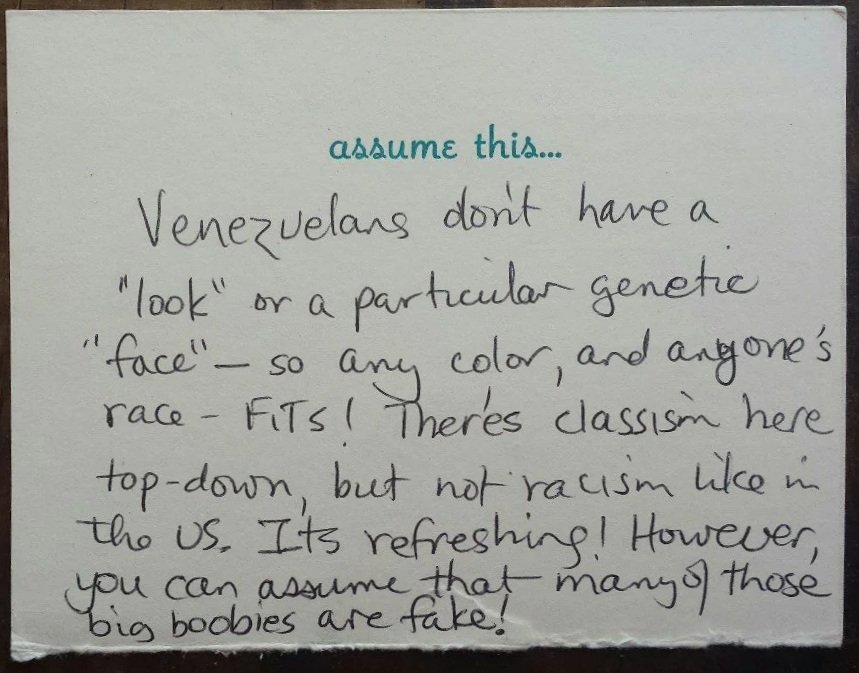 assume this...
Venezuelans don't have a
"look" or a particular genetic
"face" — so any color, and anyone's
race - FITS! There's classism here
top-down, but not racism like in
the US. It's refreshing! However,
you can assume that many of those
big boobies are fake!